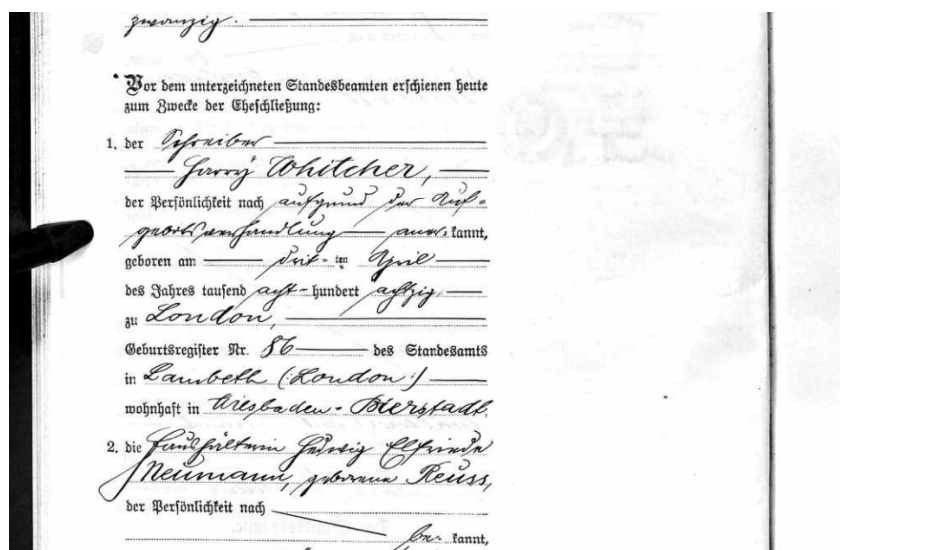 zwanzig.
Vor dem unterzeichneten Standesbeamten erschienen heute
zum Zwecke der Eheschließung:
1. der Schreiber
Harry Whitcher,
der Persönlichkeit nach aufgrund der Auf=
gebotsverhandlung aner=kannt,
geboren am drit=ten April
des Jahres tausend acht-hundert achtzig,
zu London,
Geburtsregister Nr. 86 des Standesamts
in Lambeth (:London:)
wohnhaft in Wiesbaden-Bierstadt.
2. die Haushälterin Hedwig Elfriede
Neumann, geborene Reuss,
der Persönlichkeit nach
be=kannt,